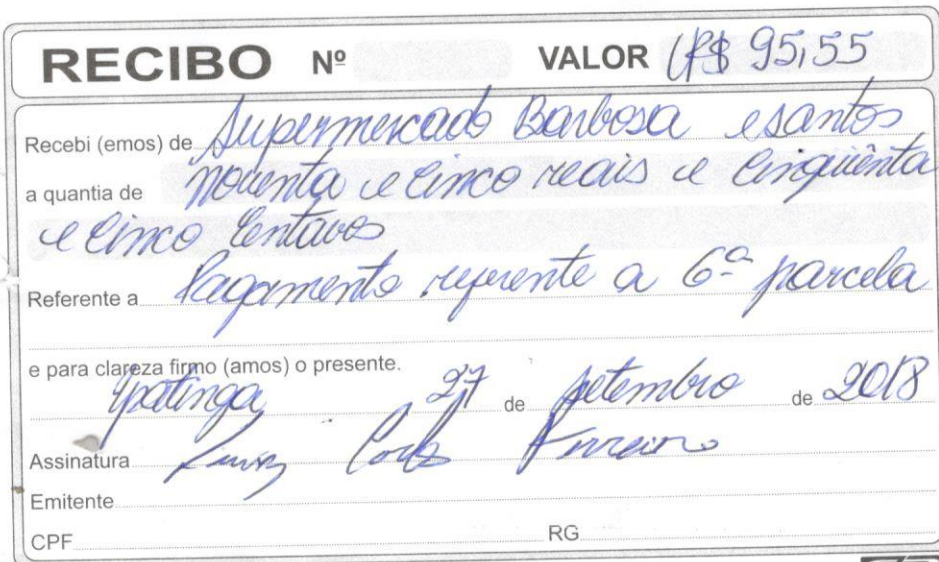 RECIBO Nº VALOR R$ 95,55
Recebi (emos) de Supermercado Barbosa e santos
a quantia de noventa e cinco reais e cinqüênta
e cinco centavos
Referente a Pagamento referente a 6ª parcela
e para clareza firmo (amos) o presente.
Ipatinga 27 de setembro de 2018
Assinatura Luiz Carlos Ferreira
Emitente
CPF RG